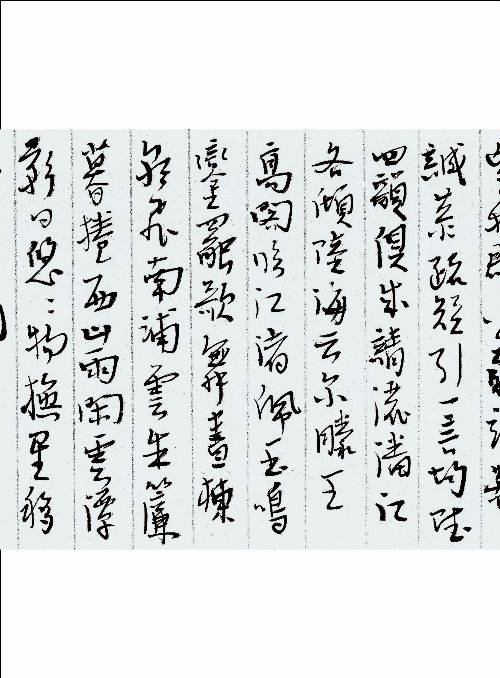 誠恭疏短引一言均賦
四韻俱成請灑潘江
各傾陸海云尔滕王
高閣臨江渚佩玉鳴
鸞罷歌舞畫棟
朝飛南浦雲朱簾
暮捲西山雨閑雲潭
影日悠々物換星移